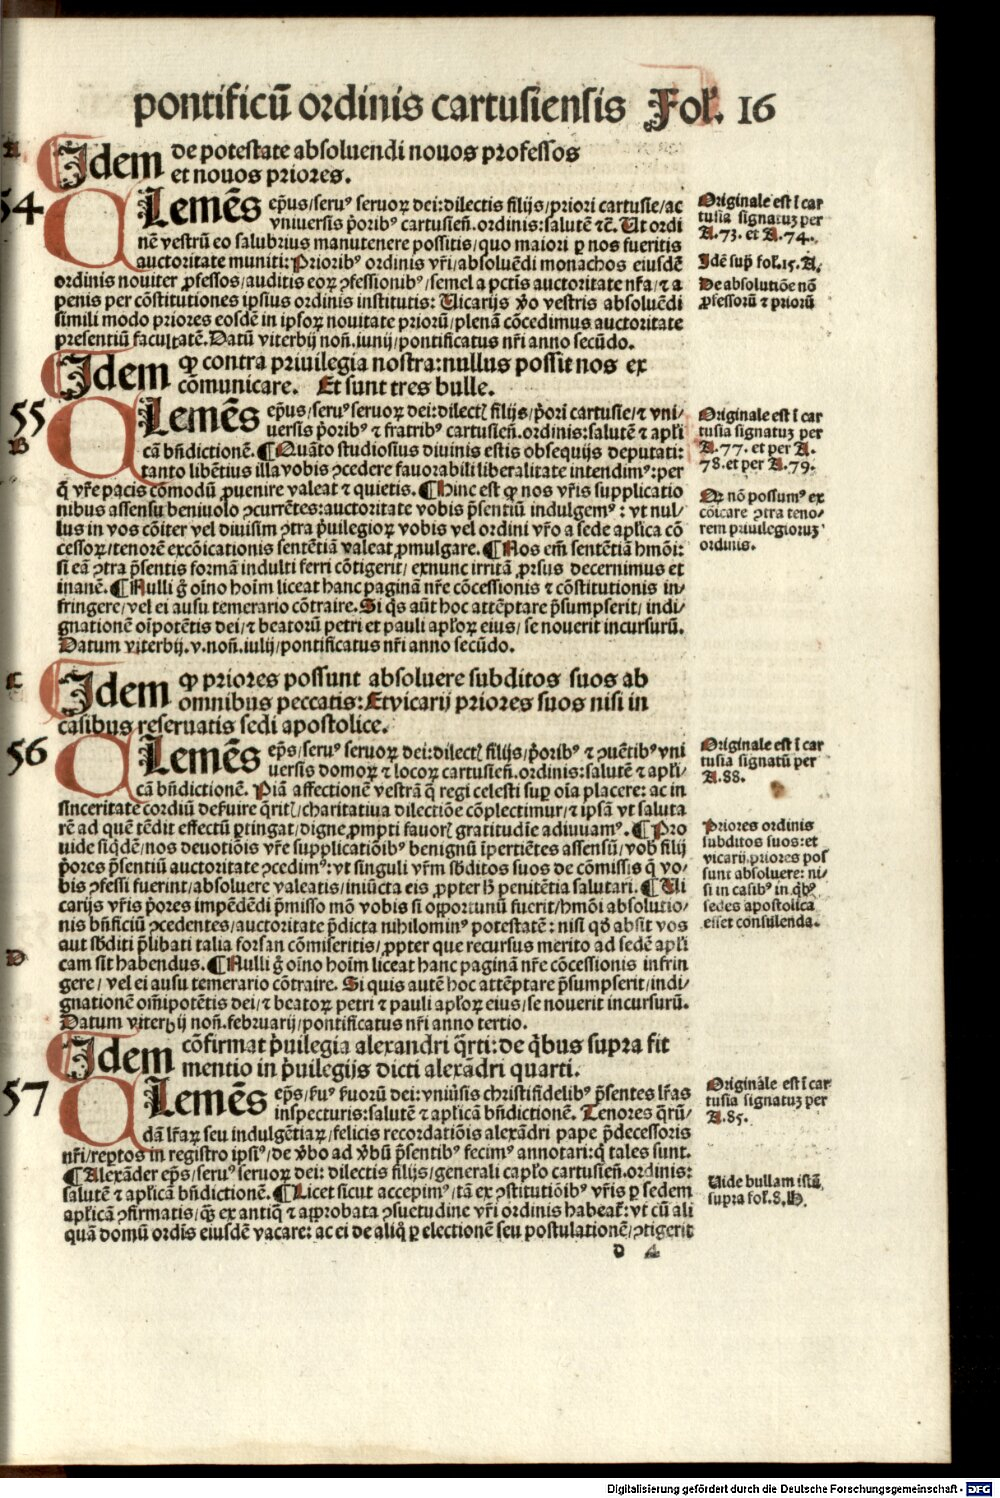 pontificū ordinis cartusiensis Fol. 16
A
Idem de potestate absoluendi nouos professos
et nouos priores.
54
Lemēs ep̄us/seruꝰ seruoꝝ dei:dilectis filijs/priori cartusie/ac
vniuersis p̄oribꝰ cartusien̄.ordinis:salutē ⁊c̄. Ut ordi
nē vestrū eo salubrius manutenere possitis/quo maiori ꝑ nos fueritis
auctoritate muniti:Prioribꝰ ordinis vr̄i/absoluēdi monachos eiusdē
ordinis nouiter ꝓfessos/auditis eoꝝ ꝯfessionibꝰ/semel a pctis auctoritate nr̄a/⁊ a
penis per cōstitutiones ipsius ordinis institutis: Uicarijs v̄o vestris absoluēdi
simili modo priores eosdē in ipsoꝝ nouitate prioꝝ/plenā cōcedimus auctoritate
presentiū facultatē.Datū viterbij non̄.iunij/pontificatus nr̄i anno secūdo.
Originale est ī car
tusia signatuꝫ per
A.73. et A.74.
Idē sup̄ fol.15.A.
De absolutiōe nō
ꝓfessorū ⁊ priorū
Idem ꝙ contra priuilegia nostra:nullus possit nos ex
cōmunicare. Et sunt tres bulle.
55
B
Lemēs ep̄us/seruꝰ seruoꝝ dei:dilectꝭ filijs/p̄ori cartusie/⁊ vni/
uersis p̄oribꝰ ⁊ fratribꝰ cartusien̄.ordinis:salutē ⁊ apl̄i
cā bn̄dictionē. ¶Quāto studiosius diuinis estis obsequijs deputati:
tanto libētius illa vobis ꝯcedere fauorabili liberalitate intendimꝰ:per
q̄ vr̄e pacis cōmodū ꝓuenire valeat ⁊ quietis. ¶Hinc est ꝙ nos vr̄is supplicatio
nibus assensu beniuolo ꝯcurrētes:auctoritate vobis p̄sentiū indulgemꝰ: vt nul/
lus in vos cōiter vel diuisim ꝯtra p̄uilegioꝝ vobis vel ordini vr̄o a sede apl̄ica cō
cessoꝝ/tenorē excōicationis sentētiā valeat ꝓmulgare. ¶Nos em̄ sentētiā hmōi:
si eā ꝯtra p̄sentis formā indulti ferri cōtigerit/exnunc irritā ꝓrsus decernimus et
inanē. ¶Nulli g̊ oīno hoīm liceat hanc paginā nr̄e cōcessionis ⁊ cōstitutionis in/
fringere/vel ei ausu temerario cōtraire.Si q̄s aūt hoc attēptare p̄sumpserit/indi/
gnationē oīpotētis dei/⁊ beatorū petri et pauli apl̄oꝝ eius/se nouerit incursurū.
Datum viterbij.v.non̄.iulij/pontificatus nr̄i anno secūdo.
Originale est ī car
tusia signatuꝫ per
A.77. et per A.
78.et per A.79.
Qꝛ nō possumꝰ ex
cōicare ꝯtra teno/
rem priuilegioruꝫ
ordinis.
C
Idem ꝙ priores possunt absoluere subditos suos ab
omnibus peccatis:Et vicarij priores suos nisi in
casibus reseruatis sedi apostolice.
56
Lemēs ep̄s/seruꝰ seruoꝝ dei:dilectꝭ filijs/p̄oribꝰ ⁊ ꝯuētibꝰ vni
uersis domoꝝ ⁊ locoꝝ cartusien̄.ordinis:salutē ⁊ apl̄i/
cā bn̄dictionē. Piā affectionē vestrā q̄ regi celesti suꝑ oīa placere: ac in
sinceritate cordiū deẜuire q̄ritꝭ/charitatiua dilectiōe cōplectimur/⁊ ipsā vt saluta
rē ad quē tēdit effectū ꝑtingat/digne ꝓmpti fauorꝭ gratitudīe adiuuamꝰ. ¶Pro
uide siq̄dē/nos deuotiōis vr̄e supplicatiōibꝰ benignū īpertiētes assensū/vob̄ filij
p̄ores p̄sentiū auctoritate ꝯcedimꝰ:vt singuli vr̄m sb̄ditos suos de cōmissis q̄ vo/
bis ꝯfessi fuerint/absoluere valeatis/iniūcta eis ꝓpter h̄ penitētia salutari. ¶Ui
carijs vr̄is p̄ores impēdēdi p̄misso mō vobis si oꝓortunū fuerit/hmōi absolutio/
nis bn̄ficiū ꝯcedentes/auctoritate p̄dicta nihilominꝰ potestatē: nisi qd̄ absit vos
aut sb̄diti p̄libati talia forsan cōmiseritis/ꝓpter que recursus merito ad sedē apl̄i
cam sit habendus. ¶Nulli g̊ oīno hoīm liceat hanc paginā nr̄e cōcessionis infrin
gere/vel ei ausu temerario cōtraire. Si quis autē hoc attēptare p̄sumpserit/indi/
gnationē om̄ipotētis dei/⁊ beatoꝝ petri ⁊ pauli apl̄oꝝ eius/se nouerit incursurū.
Datum viterbij non̄.februarij/pontificatus nr̄i anno tertio.
D
Originale est ī car
tusia signatū per
A.88.
Priores ordinis
subditos suos:et
vicarij.priores pos
sunt absoluere: ni/
si in casibꝰ in.qb̄ꝰ
sedes apostolica
esset consulenda.
Idem cōfirmat p̄uilegia alexandri q̄rti:de qb̄us supra fit
mentio in p̄uilegijs dicti alexādri quarti.
57
Lemēs ep̄s/ẜuꝰ ẜuorū dei:vniūsis christifidelibꝰ p̄sentes lr̄as
inspecturis:salutē ⁊ apl̄icā bn̄dictionē. Tenores q̄rū/
dā lr̄aꝝ seu indulgētiaꝝ/felicis recordatiōis alexādri pape p̄decessoris
nr̄i/reptos in registro ipsiꝰ/de v̄bo ad v̄bū p̄sentibꝰ fecimꝰ annotari:q̄ tales sunt.
¶Alexāder ep̄s/seruꝰ seruoꝝ dei: dilectis filijs/generali capl̄o cartusien̄.ordinis:
salutē ⁊ apl̄icā bn̄dictionē. ¶Licet sicut accepimꝰ/tā ex ꝯstitutiōibꝰ vr̄is ꝑ sedem
apl̄icā ꝯfirmatis/qꝫ ex antiq̄ ⁊ aꝓrobata ꝯsuetudine vr̄i ordinis habeat̄:vt cū ali
quā domū ordīs eiusdē vacare: ac ei de aliq̄ ꝑ electionē seu postulationē/ꝯtigerit
d 4
Originale est ī car
tusia signatuꝫ per
A.85.
Uide bullam istā,
supra fol.8.H.
Digitalisierung gefördert durch die Deutsche Forschungsgemeinschaft - DFG